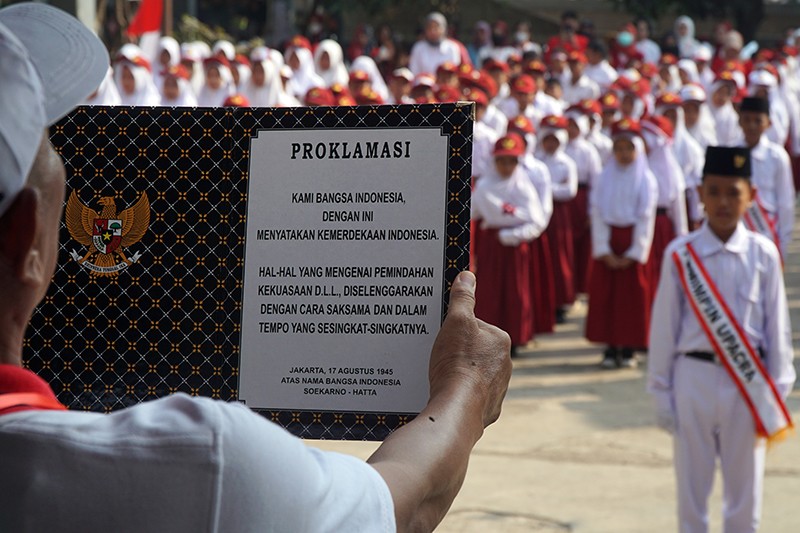 PROKLAMASI
KAMI BANGSA INDONESIA,
DENGAN INI
MENYATAKAN KEMERDEKAAN INDONESIA.
HAL-HAL YANG MENGENAI PEMINDAHAN
KEKUASAAN D.L.L., DISELENGGARAKAN
DENGAN CARA SAKSAMA DAN DALAM
TEMPO YANG SESINGKAT-SINGKATNYA.
JAKARTA, 17 AGUSTUS 1945
ATAS NAMA BANGSA INDONESIA
SOEKARNO - HATTA
UPACARA